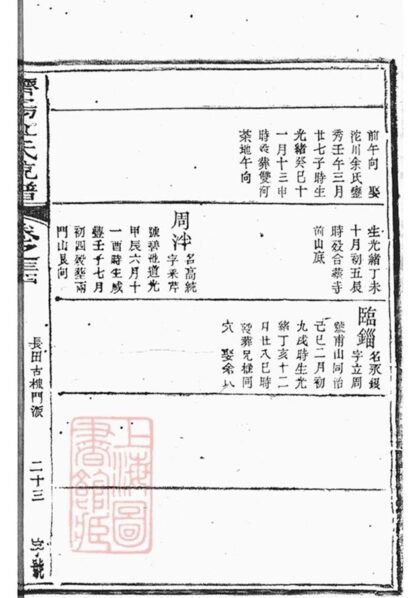 前午向 娶
沱川余氏鑾
秀壬午三月
廿七子時生
光緒癸巳十
一月十三申
時歿葬雙河
茶地午向
生光緒丁未
十月初五辰
時歿合葬寺
前山底
周泮
名高純
字采芹
號碧池道光
甲辰六月十
一酉時生咸
豐壬子七月
初四歿葬兩
門山艮向
臨鎦
名承錢
字立周
號甫山同治
己巳二月初
九戌時生光
緒丁亥十二
月廿八巳時
歿葬兄墓同
穴 娶余八
長田古樓門派
二十三
上海圖
書館藏